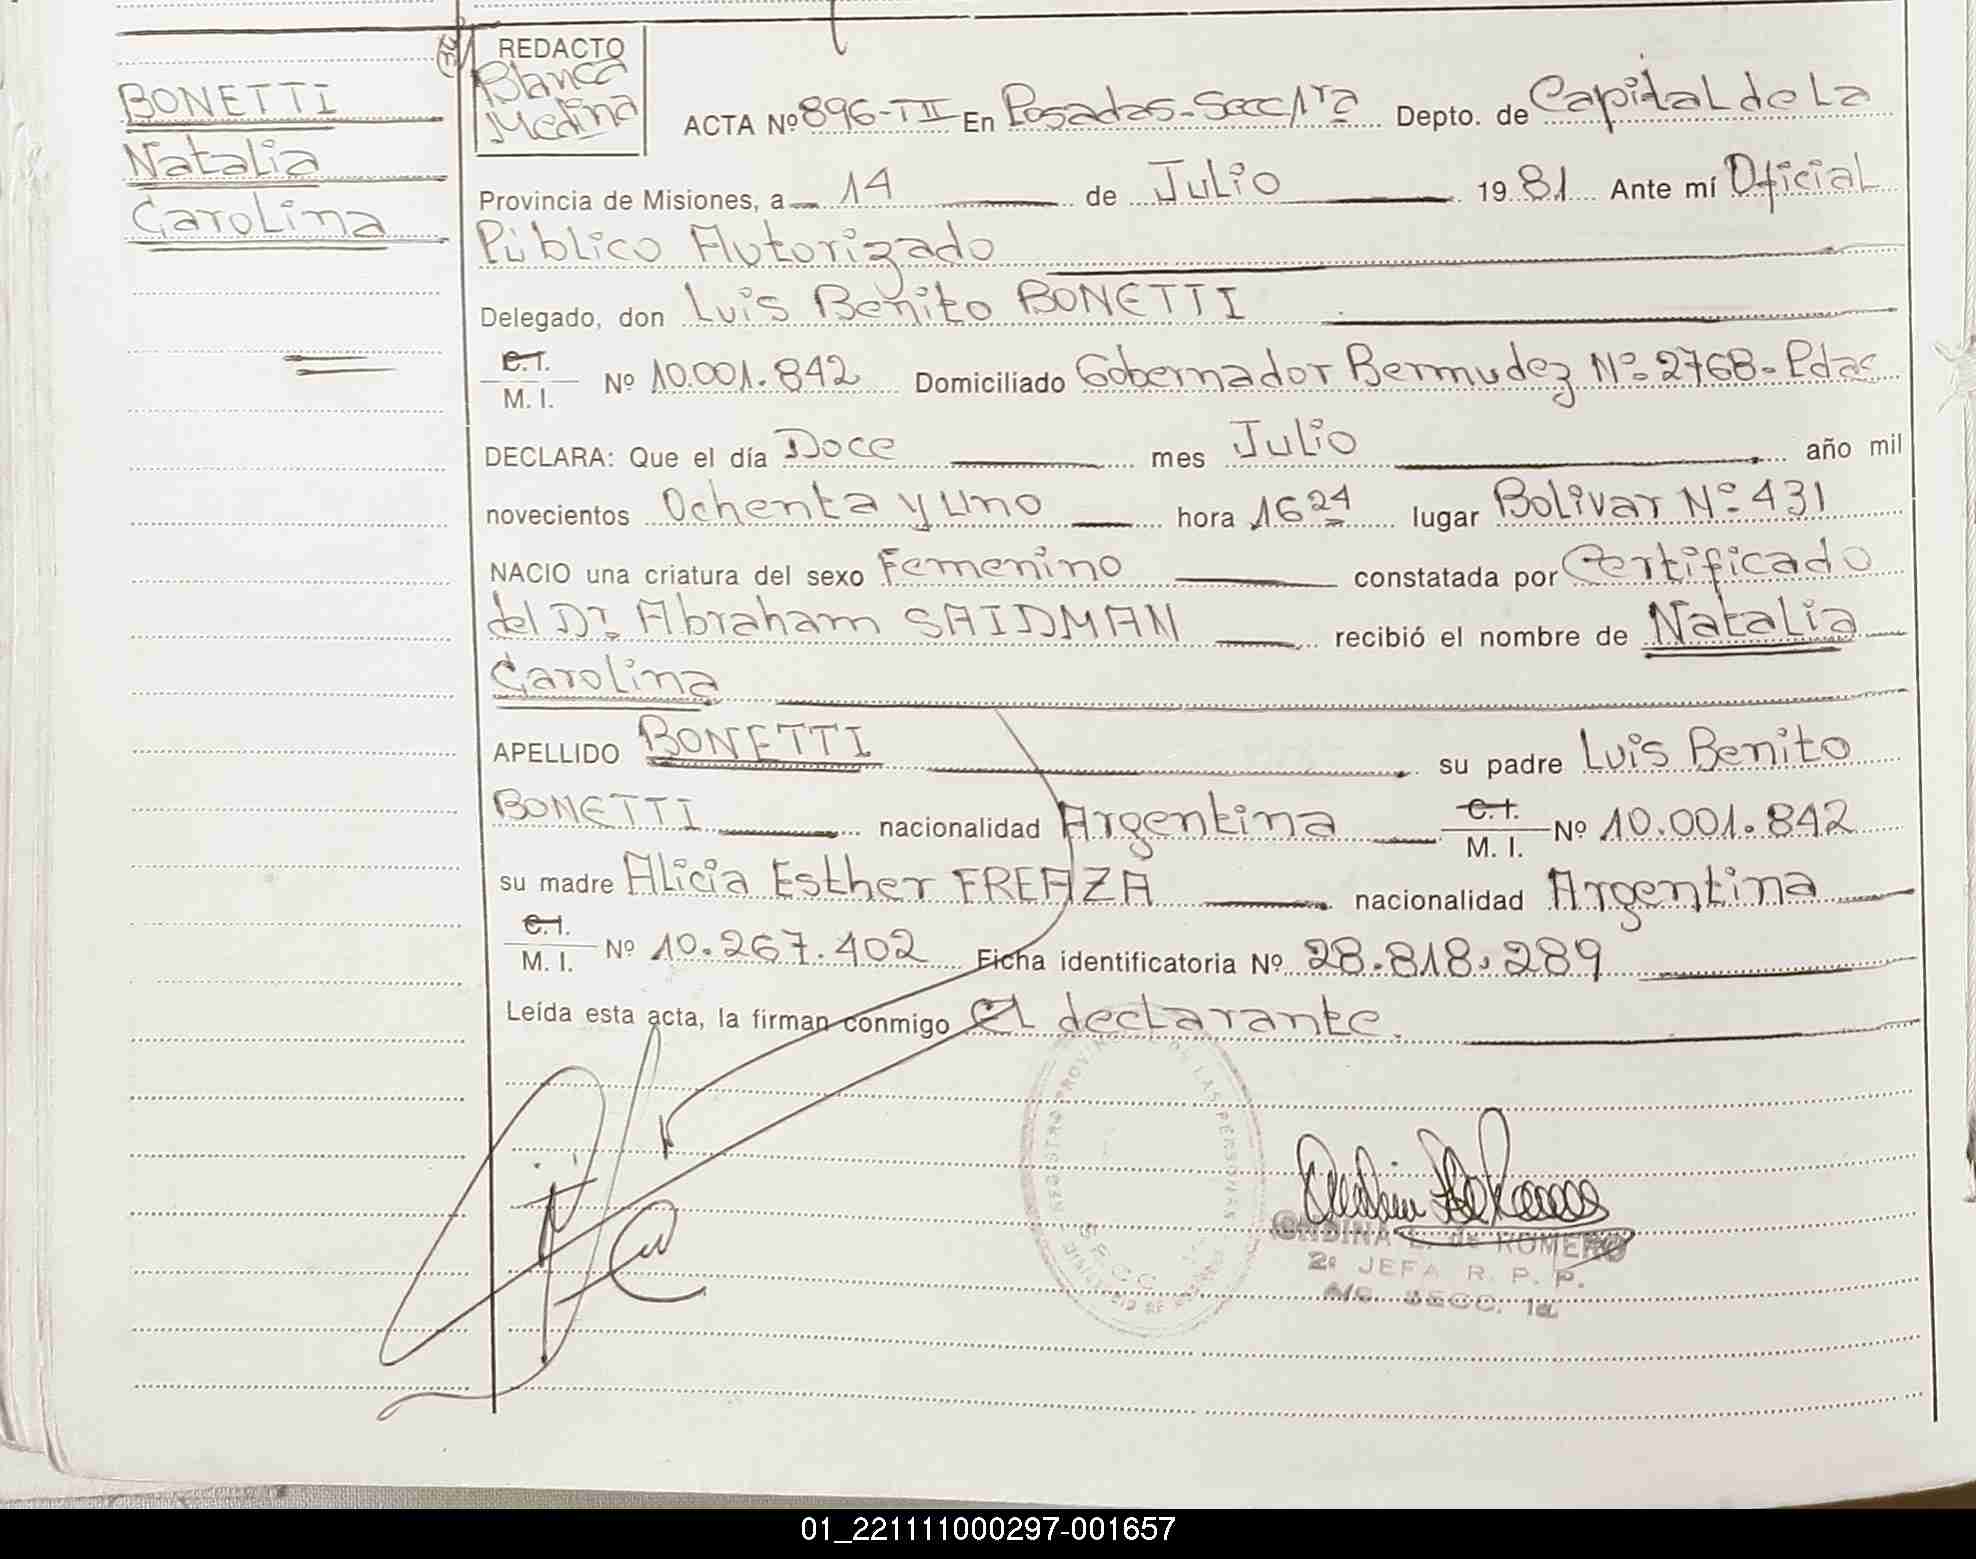 BONETTI
Natalia
Carolina
REDACTO
Blanca
Medina
ACTA Nº 896-TII En Posadas-Secc/1ra Depto. de Capital de La
Provincia de Misiones, a 14 de Julio 1981 Ante mí Oficial
Público Autorizado
Delegado, don Luis Benito BONETTI
C.I.
M. I. Nº 10.001.842 Domiciliado Gobernador Bermudez Nº 2768-Pdas
DECLARA: Que el día Doce mes Julio año mil
novecientos Ochenta y uno hora 16 24 lugar Bolivar Nº 431
NACIO una criatura del sexo Femenino constatada por Certificado
del Dr. Abraham SAIDMAN recibió el nombre de Natalia
Carolina
APELLIDO BONETTI su padre Luis Benito
BONETTI nacionalidad Argentina C.I. M. I. Nº 10.001.842
su madre Alicia Esther FREAZA nacionalidad Argentina
C.I.
M. I. Nº 10.267.402 Ficha identificatoria Nº 28.818.289
Leída esta acta, la firman conmigo el declarante.
REGISTRO PROVINCIAL DE LAS PERSONAS
ONDINA L. de ROMERO
2º JEFA R. P. P.
A/C. SECC. 1a
01_221111000297-001657